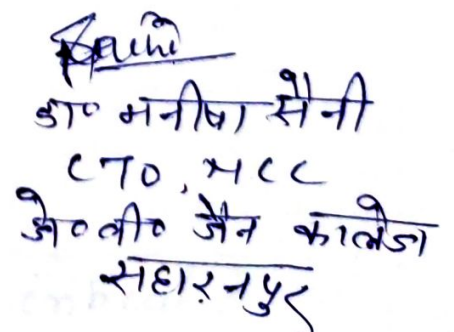 Saini
डा० मनीषा सैनी
CTO, NCC
जे०वी० जैन कालेज
सहारनपुर